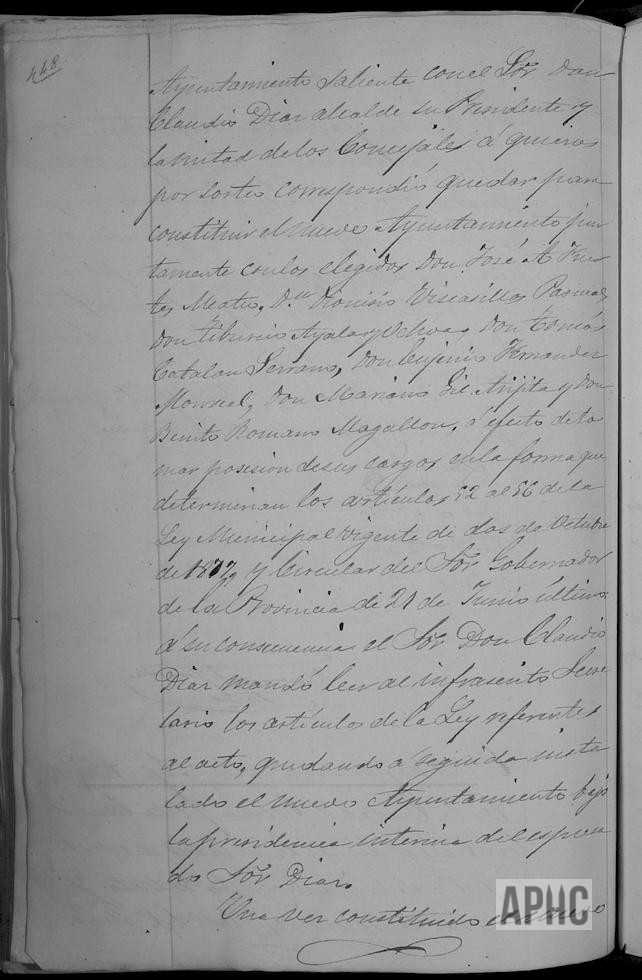 448
Ayuntamiento saliente con el Sör. Don
Claudio Diaz alcalde su Presidente y
la mitad de los Concejales á quienes
por sorteo correspondió quedar para
constituir el nuevo Ayuntamiento jun
tamente con los elegidos Don José A. Fuer
tes Mateo, Dn. Dionisio Viscasillas Pascual,
Don Tiburcio Ayala y Ochoa, Don Tomás
Catalan Serrano, Don Eugenio Fernandez
Monreal, Don Mariano Gil Arijita y Don
Benito Romano Magallon, á efecto de to
mar posesion de sus cargos en la forma que
determinan los artículos 52 al 56 de la
Ley Municipal vigente de dos de Octubre
de 1877, y Circular del Sör. Gobernador
de la Provincia de 21 de Junio último:
á su consecuencia el Sör. Don Claudio
Diaz mandó leer al infrascrito Secre
tario los artículos de la Ley referentes
al acto, quedando á seguida insta
lado el nuevo Ayuntamiento bajo
la presidencia interina del espresa
do Sör. Diaz.
Una vez constituido el nuevo
APHC